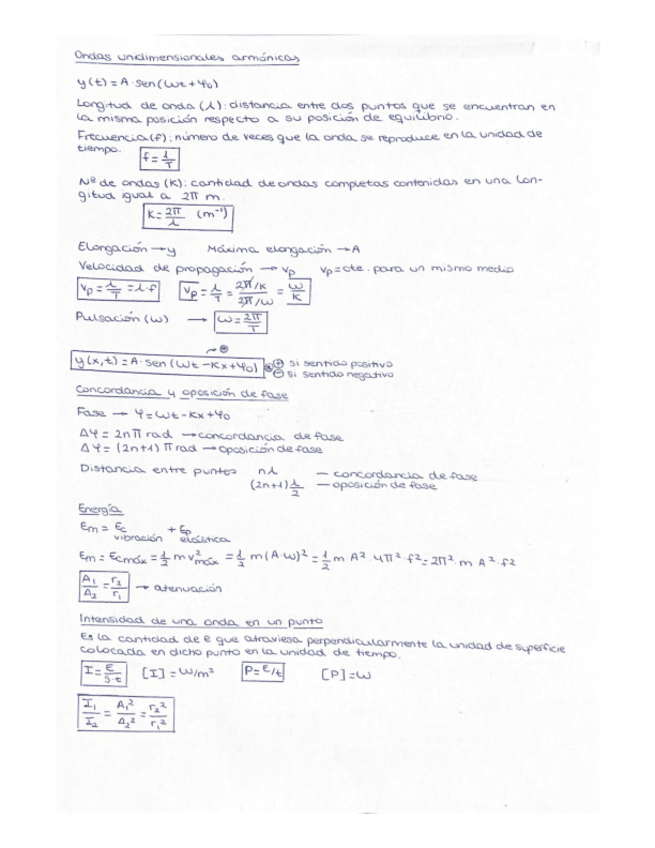 Ondas unidimensionales armónicas
y(t) = A · sen(ωt + φ0)
Longitud de onda (λ): distancia entre dos puntos que se encuentran en
la misma posición respecto a su posición de equilibrio.
Frecuencia (f): número de veces que la onda se reproduce en la unidad de
tiempo. f = 1/T
Nº de ondas (K): cantidad de ondas completas contenidas en una lon-
gitud igual a 2π m.
K = 2π/λ (m⁻¹)
Elongación → y Máxima elongación → A
Velocidad de propagación → vp vp = cte. para un mismo medio
vp = λ/T = λ·f vp = λ/T = 2π/K / 2π/ω = ω/K
Pulsación (ω) → ω = 2π/T
y(x,t) = A · sen(ωt − Kx + φ0) ⊕ si sentido positivo
⊖ si sentido negativo
Concordancia y oposición de fase
Fase → φ = ωt − Kx + φ0
Δφ = 2nπ rad → concordancia de fase
Δφ = (2n+1) π rad → oposición de fase
Distancia entre puntos nλ — concordancia de fase
(2n+1) λ/2 — oposición de fase
Energía
Em = Ec + Ep
vibración elástica
Em = Ecmáx = 1/2 m v²máx = 1/2 m (A·ω)² = 1/2 m · A² · 4π² · f² = 2π² · m A² · f²
A1/A2 = r2/r1 → atenuación
Intensidad de una onda en un punto
Es la cantidad de E que atraviesa perpendicularmente la unidad de superficie
colocada en dicho punto en la unidad de tiempo.
I = E/S·t [I] = W/m² P = E/t [P] = W
I1/I2 = A1²/A2² = r2²/r1²